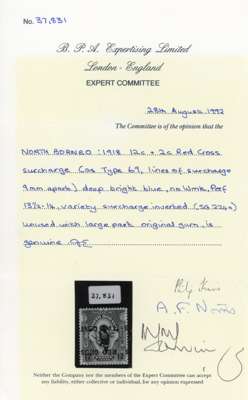 No. 37,831
B. P. A. Expertising Limited
London - England
EXPERT COMMITTEE
28th August 1992
The Committee is of the opinion that the
NORTH BORNEO: 1918 12c + 2c Red Cross
surcharge (as Type 69, lines of surcharge
9mm apart) deep bright blue, no Wmk, Perf
13½-14, variety surcharge inverted (SG 224a)
unused with large part original gum, is
genuine
37,831
A. F. Norris
Neither the Company nor the members of the Expert Committee can accept
any liability, either collective or individual, for any opinion expressed